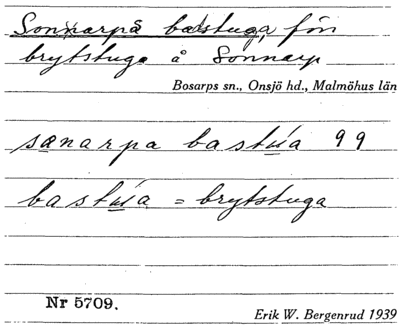 Sonnarpa badstuga, förr
brytstuga å Sonnarp
Bosarps sn., Onsjö hd., Malmöhus län
sænarpa bastúa 99
bastúa = brytstuga
Nr 5709.
Erik W. Bergenrud 1939